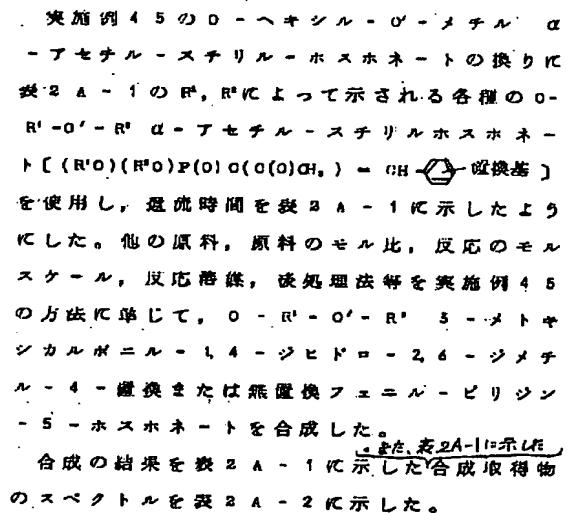 実施例45のO-ヘキシル-O'-メチル α
-アセチル-スチリル-ホスホネートの換りに
表2A-1のR¹,R²によって示される各種のO-
R¹-O'-R² α-アセチル-スチリルホスホネー
ト[(R¹O)(R²O)P(O)C(C(O)CH₃)=CH-置換基]
を使用し,還流時間を表2A-1に示したよう
にした。他の原料,原料のモル比,反応のモル
スケール,反応溶媒,後処理法等を実施例45
の方法に準じて,O-R¹-O'-R² 3-メトキ
シカルボニル-1,4-ジヒドロ-2,6-ジメチ
ル-4-置換または無置換フェニル-ピリジン
-5-ホスホネートを合成した。
。また、表2A-1に示した
合成の結果を表2A-1に示した合成取得物
のスペクトルを表2A-2に示した。